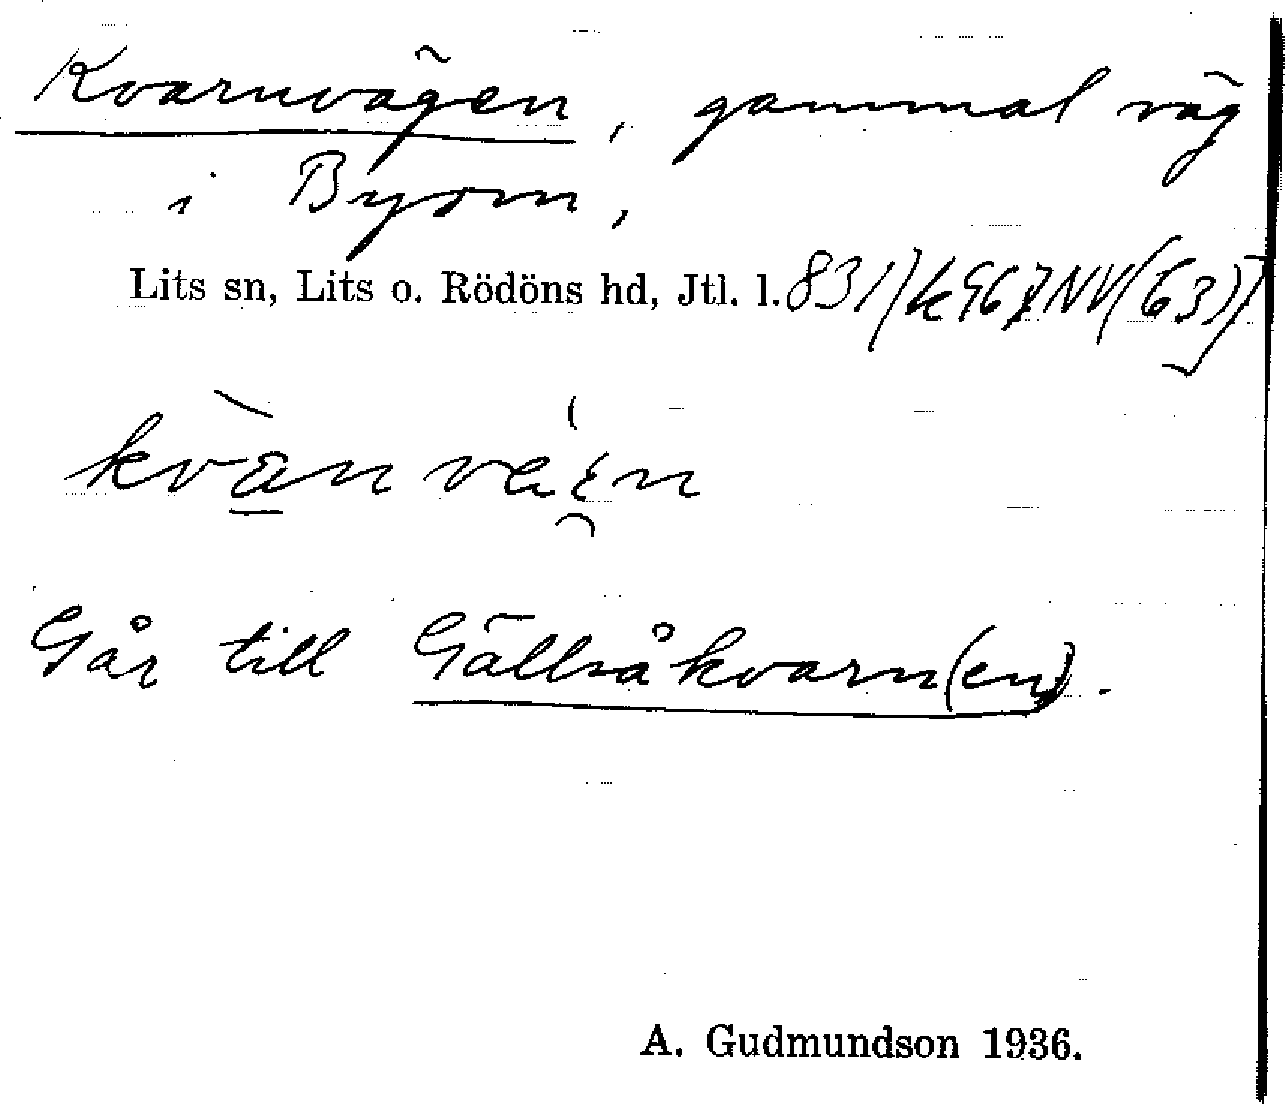 Kvarnvägen, gammal väg
i Byom,
Lits sn, Lits o. Rödöns hd, Jtl. l. 831)
kvàn
Går till Gällsåkvarn(en).
A. Gudmundson 1936.